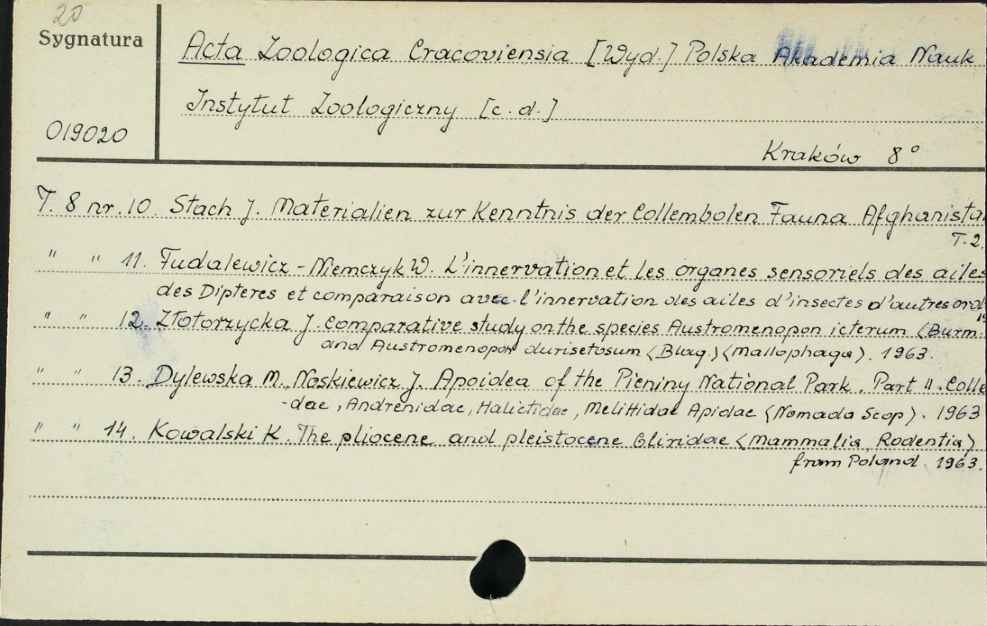 20
Sygnatura
019020
Acta Zoologica Cracoviensia [Wyd.] Polska Akademia Nauk
Instytut Zoologiczny [c.d.]
Kraków 8°
T. 8 nr. 10. Stach J. Materialien zur Kenntnis der Collembolen Fauna Afghanista
T. 2.
" " 11. Fudalewicz-Niemczyk W. L'innervation et les organes sensoriels des ailes
des Dipteres et comparaison avec l'innervation des ailes d'insectes d'autres ord
19
" " 12. Złotorzycka J. Comparative study on the species Austromenopon icterum (Burm.
and Austromenopon durisetosum (Blag.) (Mallophaga). 1963.
" " 13. Dylewska M., Noskiewicz J. Apoidea of the Pieniny National Park. Part II. Colle
-dae, Andrenidae, Halictidae, Melittidae Apidae (Nomada Scop). 1963
" " 14. Kowalski K. The pliocene and pleistocene Gliridae (Mammalia, Rodentia)
from Poland. 1963.